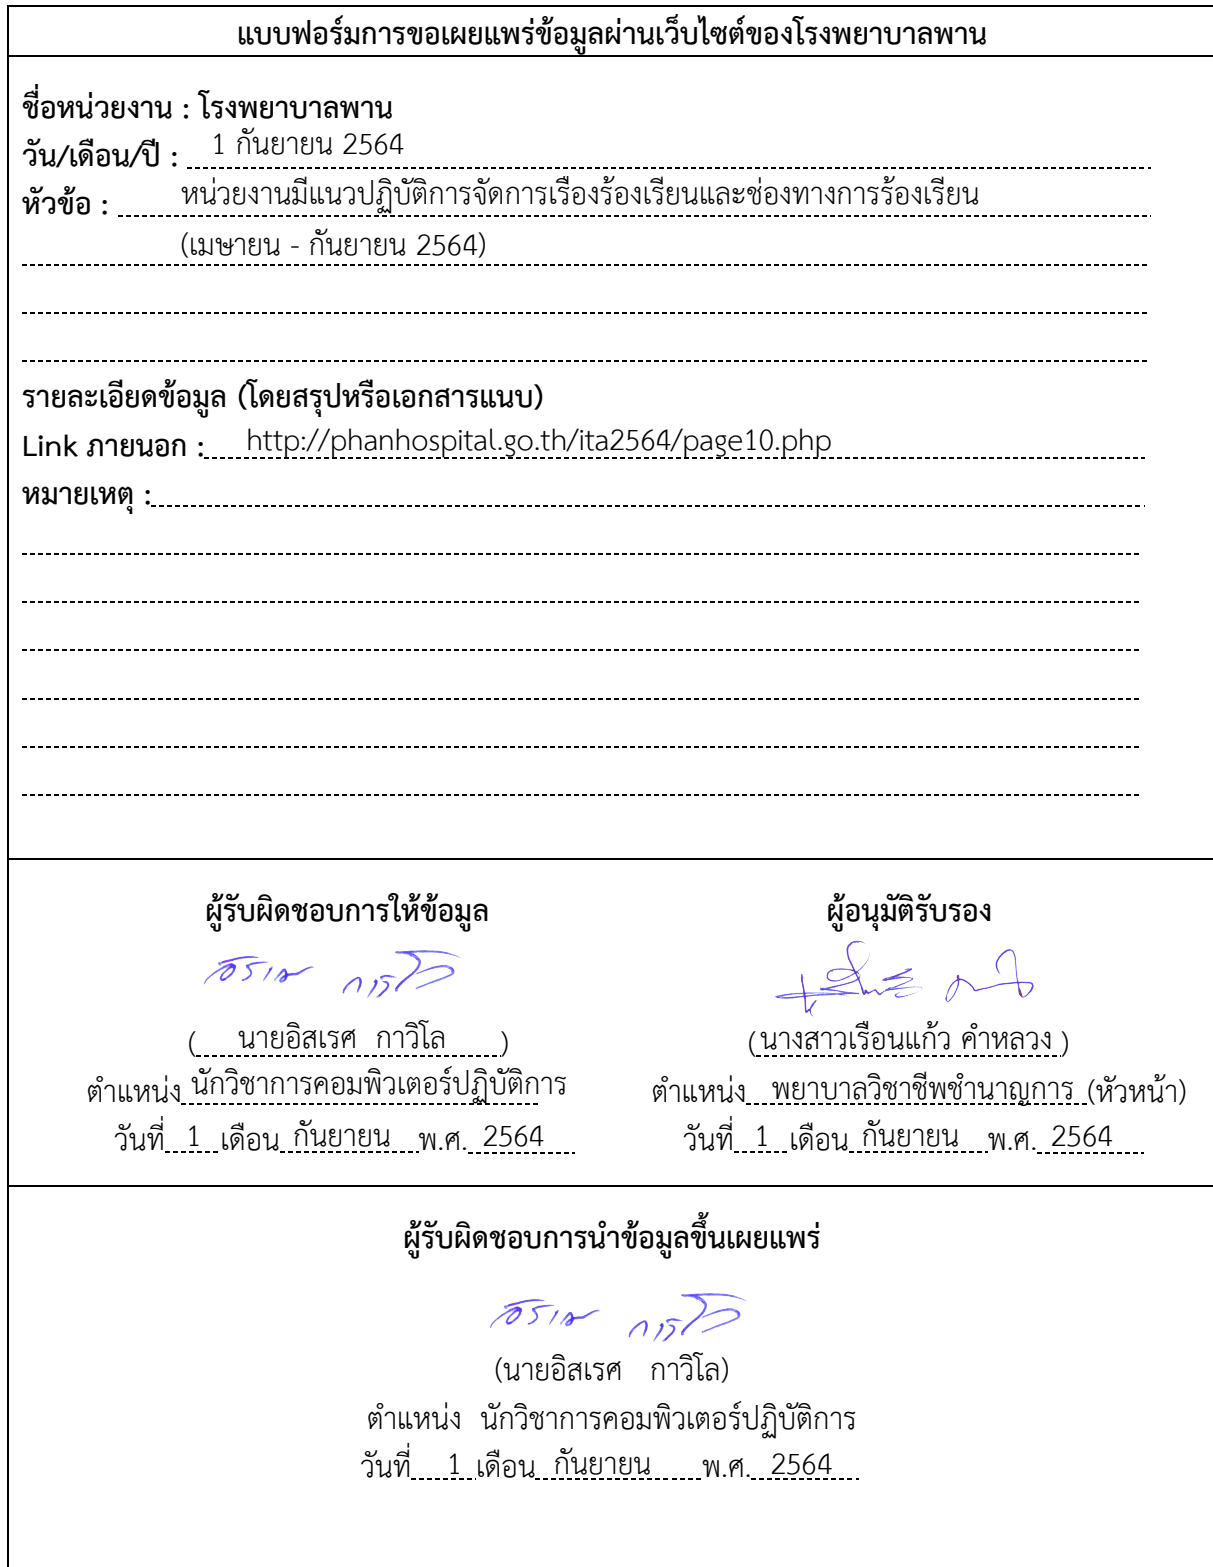 แบบฟอร์มการขอเผยแพร่ข้อมูลผ่านเว็บไซต์ของโรงพยาบาลพาน
ชื่อหน่วยงาน : โรงพยาบาลพาน
วัน/เดือน/ปี : 1 กันยายน 2564
หัวข้อ : หน่วยงานมีแนวปฏิบัติการจัดการเรื่องร้องเรียนและช่องทางการร้องเรียน
(เมษายน - กันยายน 2564)
รายละเอียดข้อมูล (โดยสรุปหรือเอกสารแนบ)
Link ภายนอก : http://phanhospital.go.th/ita2564/page10.php
หมายเหตุ :
ผู้รับผิดชอบการให้ข้อมูล ผู้อนุมัติรับรอง
( นายอิสเรศ กาวิโล ) (นางสาวเรือนแก้ว คำหลวง )
ตำแหน่ง นักวิชาการคอมพิวเตอร์ปฏิบัติการ ตำแหน่ง พยาบาลวิชาชีพชำนาญการ (หัวหน้า)
วันที่ 1 เดือน กันยายน พ.ศ. 2564 วันที่ 1 เดือน กันยายน พ.ศ. 2564
ผู้รับผิดชอบการนำข้อมูลขึ้นเผยแพร่
(นายอิสเรศ กาวิโล)
ตำแหน่ง นักวิชาการคอมพิวเตอร์ปฏิบัติการ
วันที่ 1 เดือน กันยายน พ.ศ. 2564